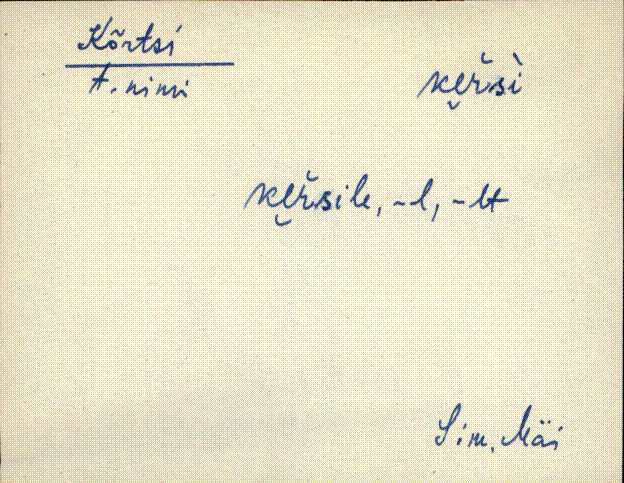 Kõrtsi
t. nimi
ke̮r̆sì
ke̮r̆sile, -l, -lt
Sim. Mäi